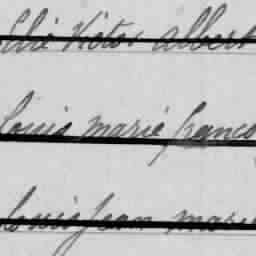 Elie Victor Albert
Louis Marie Franco
Louis Jean Marie